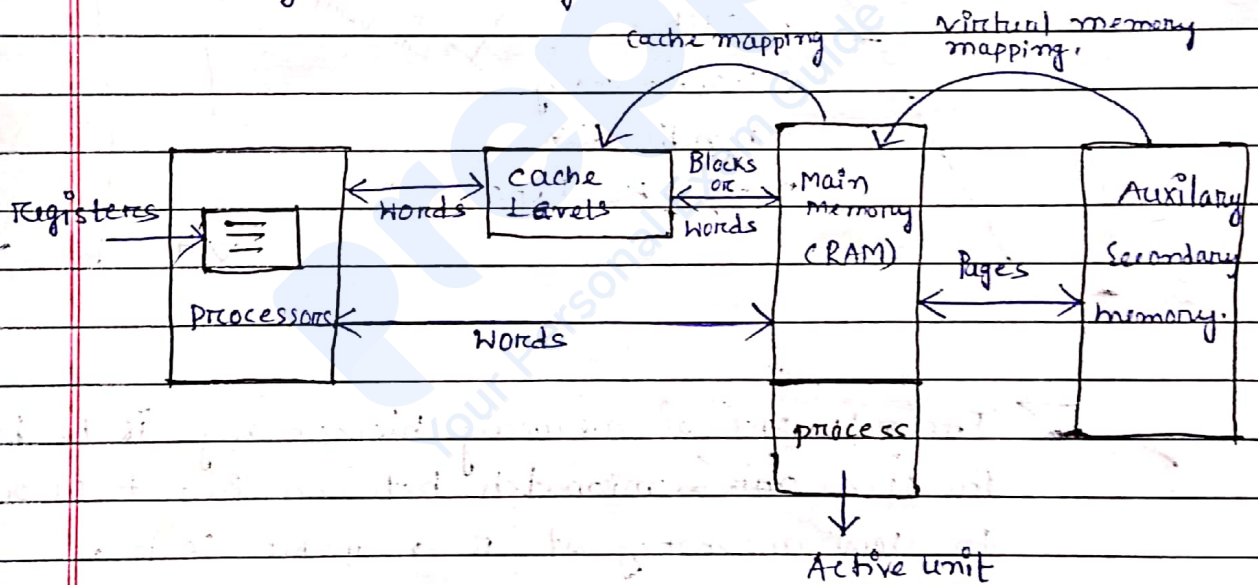 cache mapping
Virtual memory
mapping.
Registers
words
cache
Levels
Blocks
or
words
Main
Memory
(RAM)
Pages
Auxilary
Secondary
memory.
processors
words
process
Active unit
prep
Your Personal Exam Guide